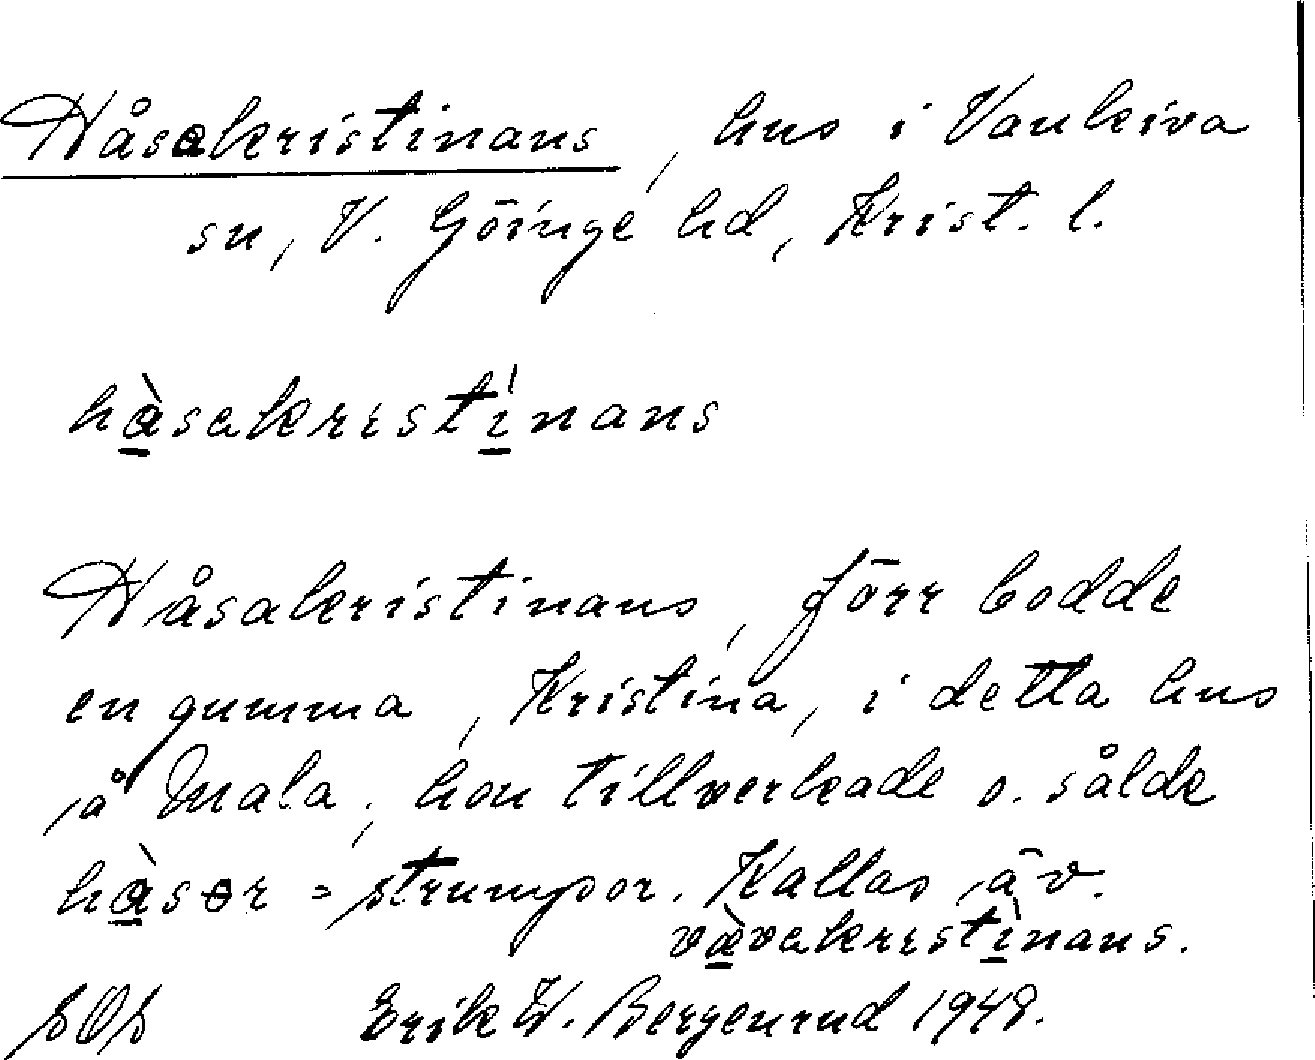 Håsakristinans, hus i Vankiva
sn, V. Göinge hd, Krist. l.
hàsakristínans
Håsakristinans, förr bodde
en gumma, Kristina, i detta hus
å Mala; hon tillverkade o. sålde
hàser = strumpor. Kallas äv.
vàvakristìnans.
SOS Erik W. Bergenrud 1948.